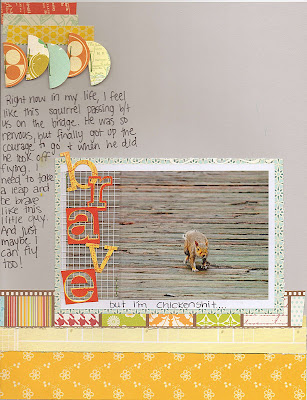 Right now in my life, I feel
like this squirrel passing by
us on the bridge. He was so
nervous, but finally got up the
courage to go & when he did
he took off
flying. I
need to take
a leap and
be brave
like this
little guy.
And just
maybe, I
can fly
too!
brave
but I'm chickenshit...